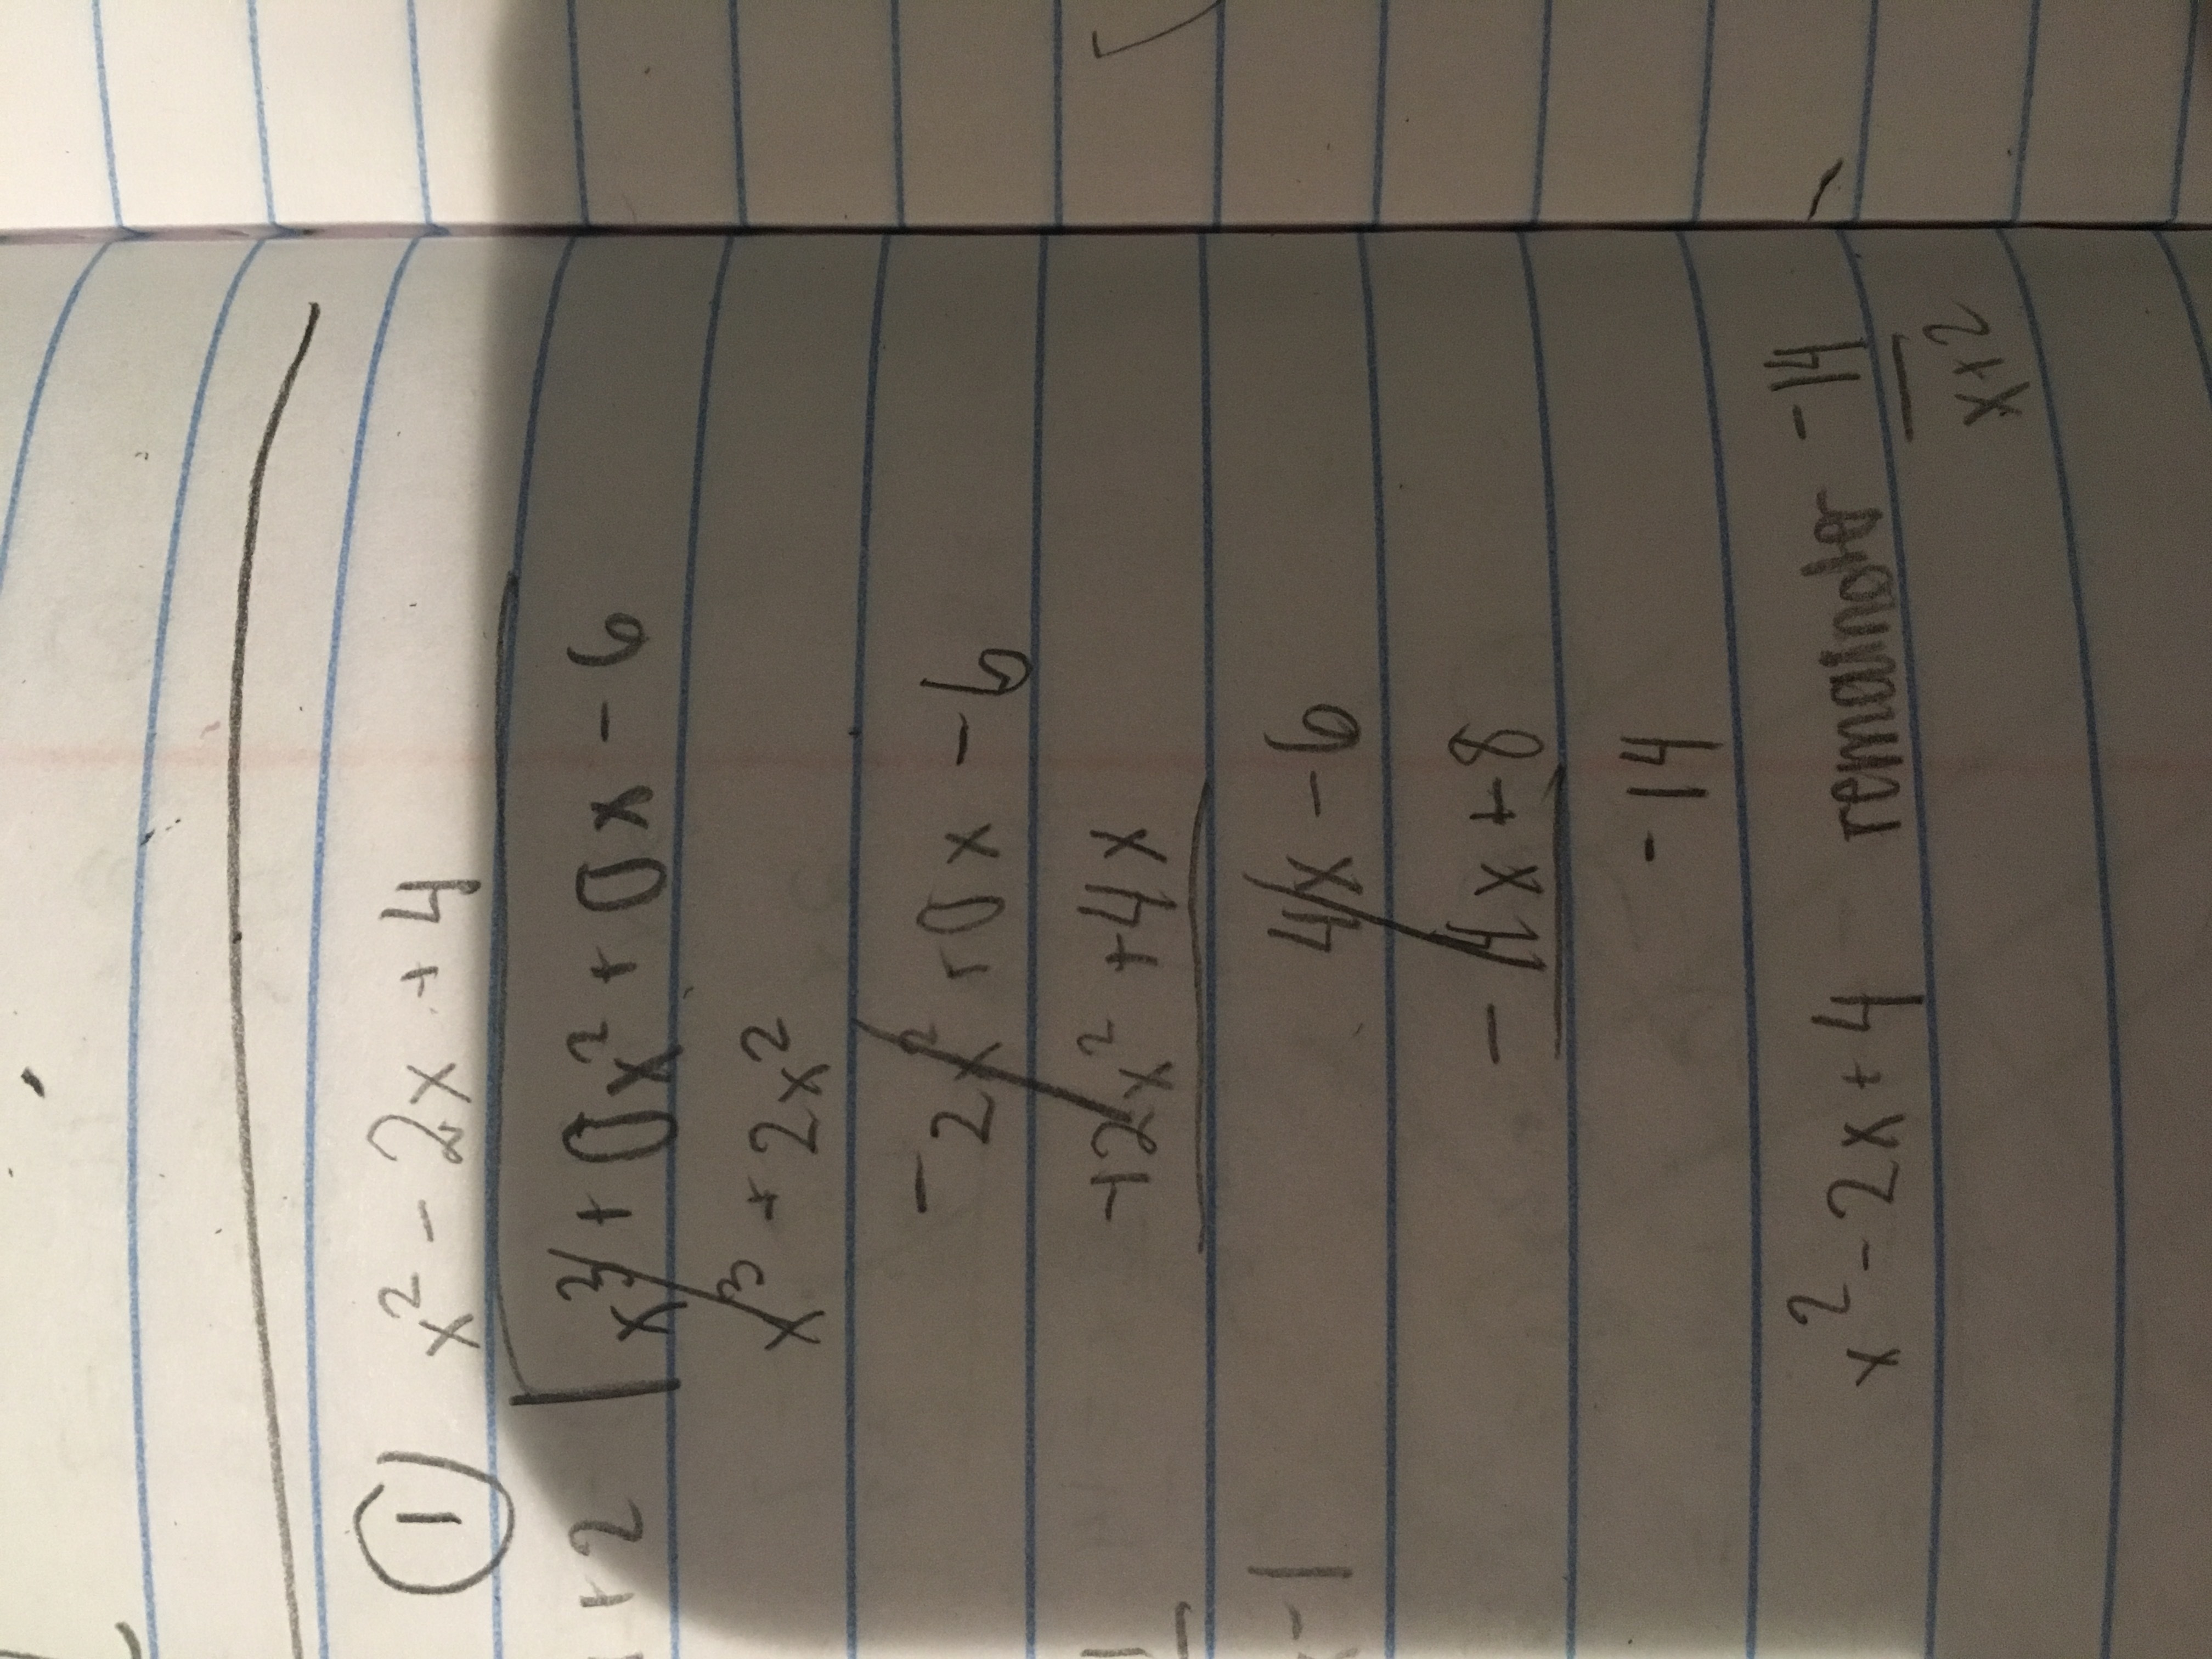 ① x² - 2x + 4
+2 | x³ + 0x² + 0x - 6
x³ + 2x²
- 2x² + 0x - 6
+2x² + 4x
4x - 6
- 4x + 8
- 14
x² - 2x + 4 remainder -14
x+2
-1